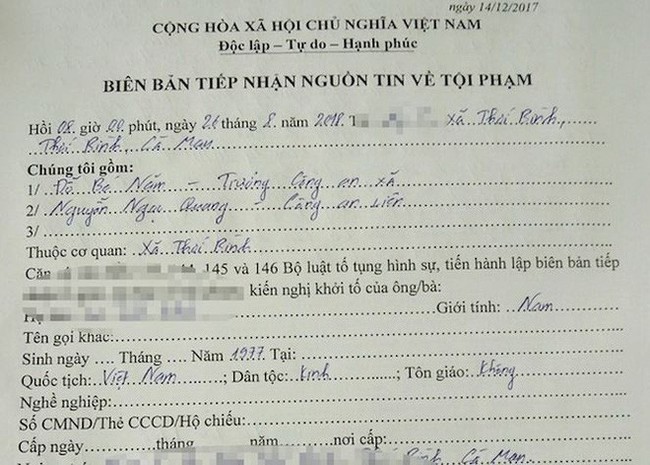 ngày 14/12/2017
CỘNG HÒA XÃ HỘI CHỦ NGHĨA VIỆT NAM
Độc lập – Tự do – Hạnh phúc
BIÊN BẢN TIẾP NHẬN NGUỒN TIN VỀ TỘI PHẠM
Hồi 08 giờ 00 phút, ngày 26 tháng 8 năm 2018 T xã Thới Bình,
Thới Bình, Cà Mau
Chúng tôi gồm:
1/ Đỗ Bé Năm – Trưởng Công an xã
2/ Nguyễn Ngọc Quang – Công an viên
3/
Thuộc cơ quan: Xã Thới Bình
Căn 145 và 146 Bộ luật tố tụng hình sự, tiến hành lập biên bản tiếp
kiến nghị khởi tố của ông/bà:
Giới tính: Nam
Tên gọi khác:
Sinh ngày .... Tháng .... Năm 1977 Tại:
Quốc tịch: Việt Nam; Dân tộc: Kinh; Tôn giáo: Không
Nghề nghiệp:
Số CMND/Thẻ CCCD/Hộ chiếu:
Cấp ngày tháng năm nơi cấp:
Bình, Cà Mau